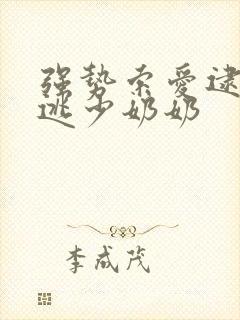 强势索爱逮
逃少奶奶
李成茂